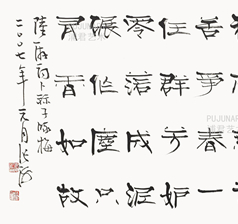 舌争春一
任群芳妒
零落成泥
碾作塵只
有香如故
陸游詞卜算子咏梅
二〇〇七年元月